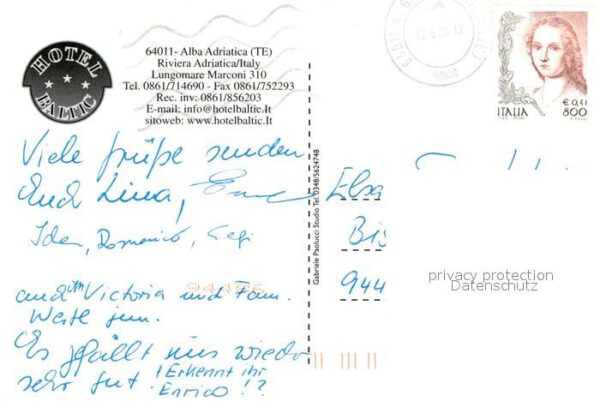 HOTEL
BALTIC
64011- Alba Adriatica (TE)
Riviera Adriatica/Italy
Lungomare Marconi 310
Tel. 0861/714690 - Fax 0861/752293
Rec. inv: 0861/856203
E-mail: info@hotelbaltic.It
sitoweb: www.hotelbaltic.It
Viele Grüße senden
Euch Lina,
Ida, Domenico, Gigi
und Victoria und Fam.
Weste jun.
Es gefällt uns wieder
sehr gut ! Erkennt ihr
Enrico!?
Gabriele Paolucci Studio Tel. 0348/5624748
Elsa
Bis
944
ITALIA
€ 0,41
800
privacy protection
Datenschutz